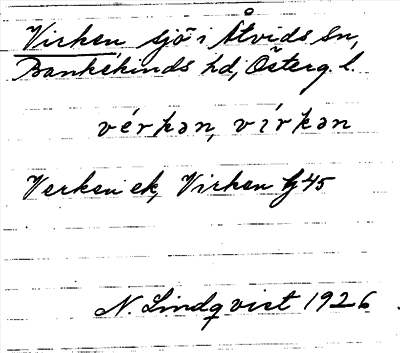 Virken, sjö i Åtvids sn,
Bankekinds hd, Österg. l.
vérkən, vírkən
Verken ek, Virken G45
N. Lindqvist 1926